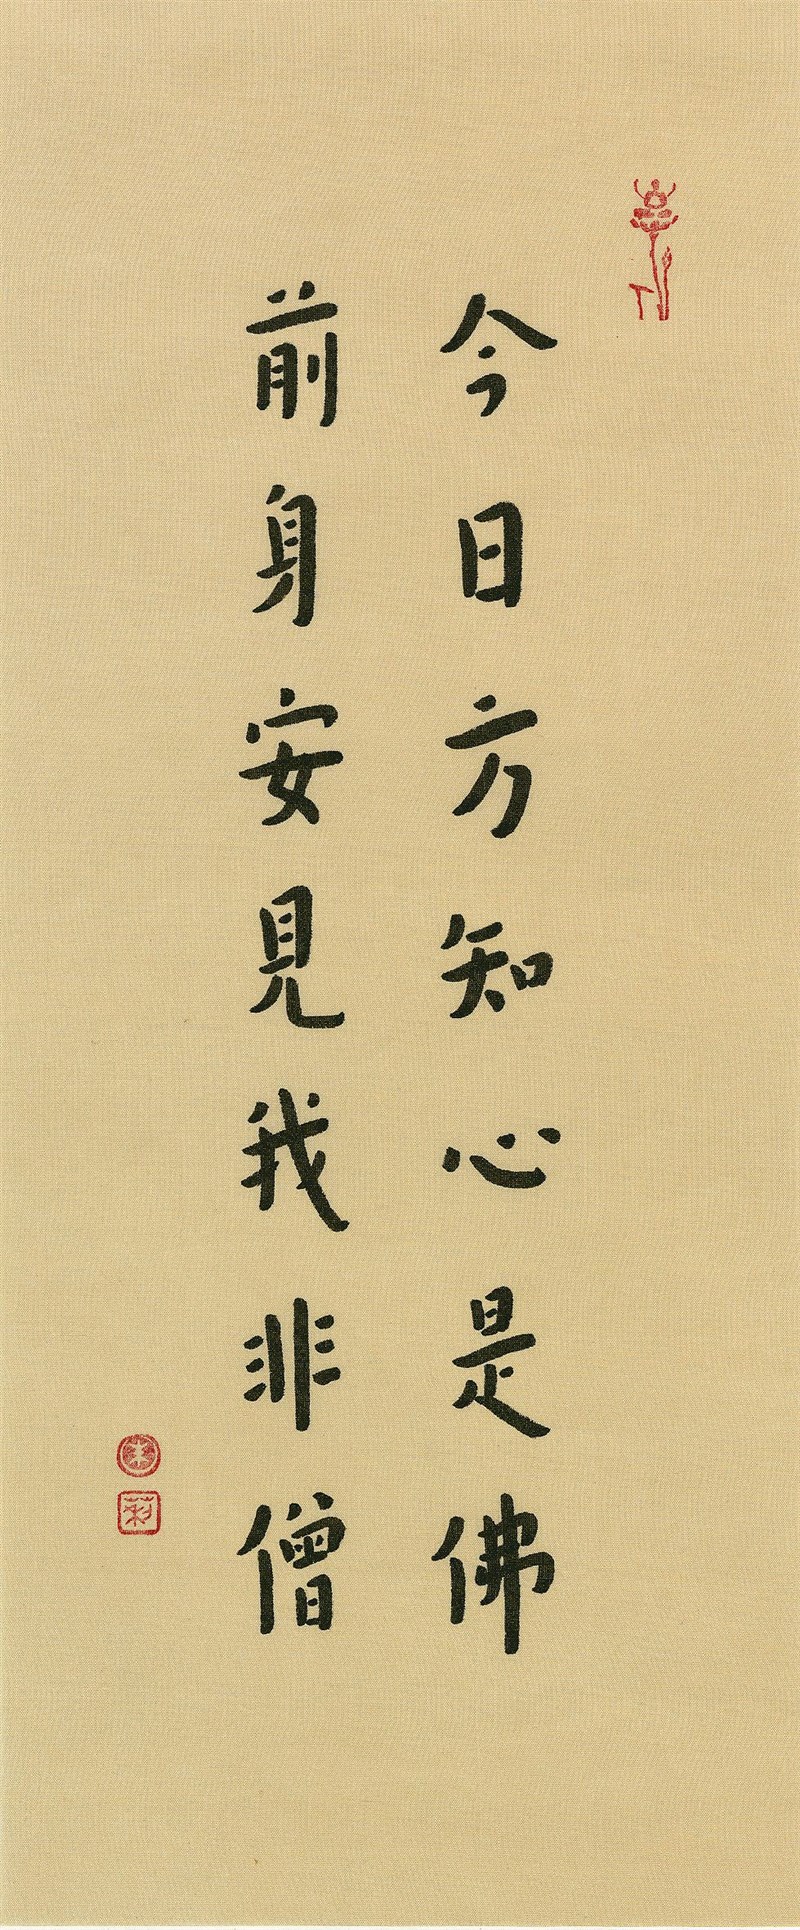 今日方知心是佛
前身安見我非僧